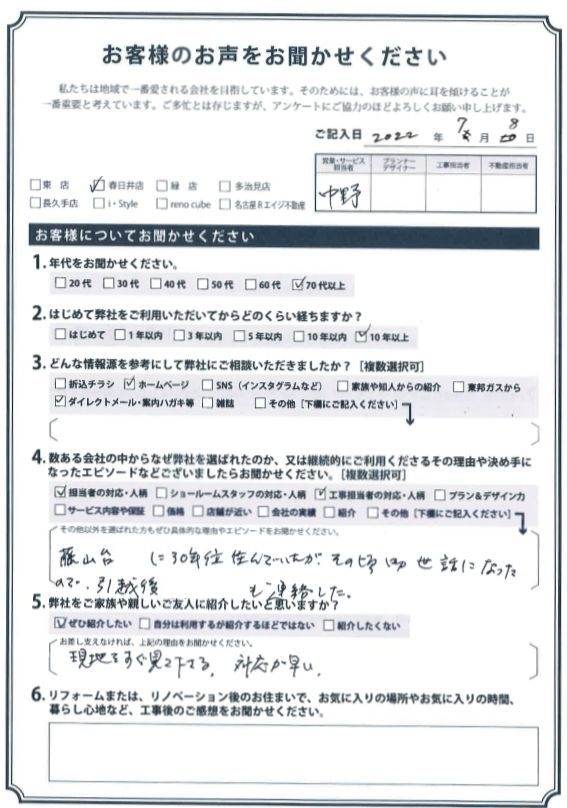 お客様のお声をお聞かせください
私たちは地域で一番愛される会社を目指しています。そのためには、お客様の声に耳を傾けることが
一番重要と考えています。ご多忙とは存じますが、アンケートにご協力のほどよろしくお願い申し上げます。
ご記入日 2022 年 7 月 8 日
営業・サービス担当者 プランナーデザイナー 工事担当者 不動産担当者
中野
□東 店 ☑春日井店 □緑 店 □多治見店
□長久手店 □i・Style □reno cube □名古屋Rエイジ不動産
お客様についてお聞かせください
1. 年代をお聞かせください。
□20代 □30代 □40代 □50代 □60代 ☑70代以上
2. はじめて弊社をご利用いただいてからどのくらい経ちますか？
□はじめて □1年以内 □3年以内 □5年以内 □10年以内 ☑10年以上
3. どんな情報源を参考にして弊社にご相談いただきましたか？［複数選択可］
□折込チラシ ☑ホームページ □SNS（インスタグラムなど） □家族や知人からの紹介 □東邦ガスから
☑ダイレクトメール・案内ハガキ等 □雑誌 □その他［下欄にご記入ください］
4. 数ある会社の中からなぜ弊社を選ばれたのか、又は継続的にご利用くださるその理由や決め手に
なったエピソードなどございましたらお聞かせください。［複数選択可］
☑担当者の対応・人柄 □ショールームスタッフの対応・人柄 ☑工事担当者の対応・人柄 □プラン＆デザイン力
□サービス内容や保証 □価格 □店舗が近い □会社の実績 □紹介 □その他［下欄にご記入ください］
その他以外を選ばれた方もぜひ具体的な理由やエピソードをお聞かせください。
藤山台 に30年位住んでいたが その頃 世話になった
ので、引越後 も連絡した。
5. 弊社をご家族や親しいご友人に紹介したいと思いますか？
☑ぜひ紹介したい □自分は利用するが紹介するほどではない □紹介したくない
お差し支えなければ、上記の理由をお聞かせください。
現地をすぐ見て下さる、対応が早い、
6. リフォームまたは、リノベーション後のお住まいで、お気に入りの場所やお気に入りの時間、
暮らし心地など、工事後のご感想をお聞かせください。